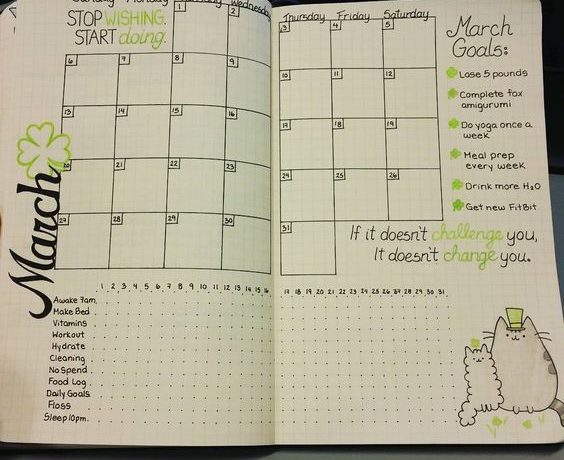 STOP WISHING.
START doing.
Sunday Monday Wednesday
1 2
6 7 8 9
13 14 15 16
20 21 22 23
27 28 29 30
March
Thursday Friday Saturday
3 4 5
10 11 12
17 18 19
24 25 26
31
March
Goals:
Lose 5 pounds
Complete fox
amigurumi
Do yoga once a
week
Meal prep
every week
Drink more H2O
Get new FitBit
If it doesn't challenge you,
It doesn't change you.
1 2 3 4 5 6 7 8 9 10 11 12 13 14 15 16 17 18 19 20 21 22 23 24 25 26 27 28 29 30 31
Awake 7am
Make Bed
Vitamins
Workout
Hydrate
Cleaning
No Spend
Food Log
Daily Goals
Floss
Sleep 10pm